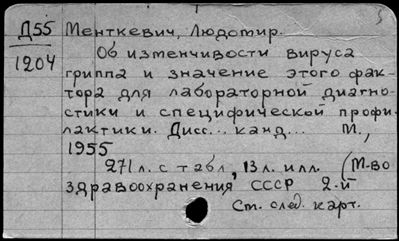 Д55 Менткевич, Людомир.
1204 Об изменчивости вируса
гриппа и значение этого фак-
тора для лабораторной диагно-
стики и специфической профи-
лактики. Дисс... канд... М.,
1955
271 л. с табл., 13 л. илл. (М-во
здравоохранения СССР 2-й
См. след. карт.